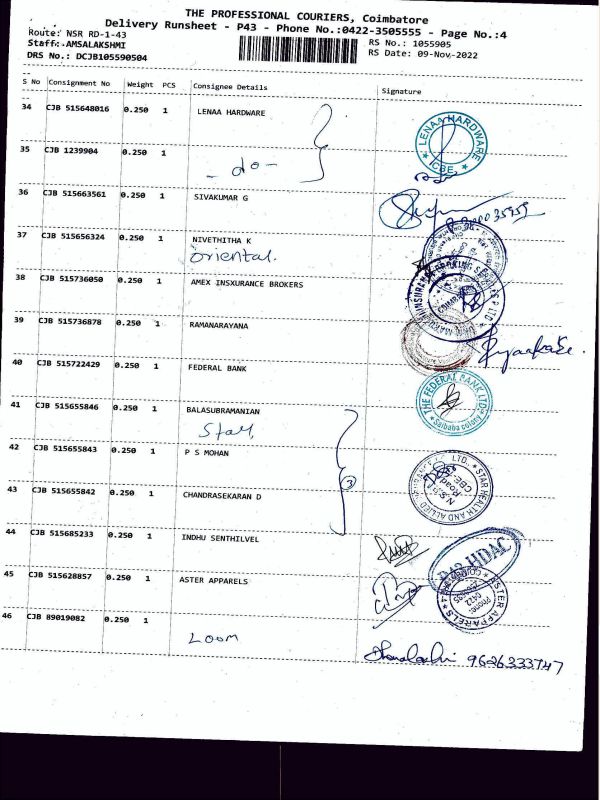 THE PROFESSIONAL COURIERS, Coimbatore
Delivery Runsheet - P43 - Phone No.:0422-3505555 - Page No.:4
Route: NSR RD-1-43
RS No.: 1055905
Staff: AMSALAKSHMI
RS Date: 09-Nov-2022
DRS No.: DCJB105590504
S No Consignment No Weight PCS Consignee Details Signature
34 CJB 515648016 0.250 1 LENAA HARDWARE
LENAA HARDWARE
CBE.
35 CJB 1239904 0.250 1
- do -
36 CJB 515663561 0.250 1 SIVAKUMAR G
37 CJB 515656324 0.250 1 NIVETHITHA K
Oriental.
38 CJB 515736050 0.250 1 AMEX INSXURANCE BROKERS
39 CJB 515736878 0.250 1 RAMANARAYANA
40 CJB 515722429 0.250 1 FEDERAL BANK
THE FEDERAL BANK LTD
Saibaba colony
41 CJB 515655846 0.250 1 BALASUBRAMANIAN
Star,
42 CJB 515655843 0.250 1 P S MOHAN
3
STAR HEALTH AND ALLIED
N.S.R.
Road
CBE
43 CJB 515655842 0.250 1 CHANDRASEKARAN D
44 CJB 515685233 0.250 1 INDHU SENTHILVEL
45 CJB 515628857 0.250 1 ASTER APPARELS
ASTER APPARELS
Phone:
0422
46 CJB 89019082 0.250 1
LOOM
9626333747